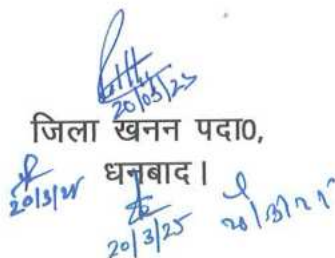 20/03/25
जिला खनन पदा0,
धनबाद।
20/3/25
20/3/25
20/3/25